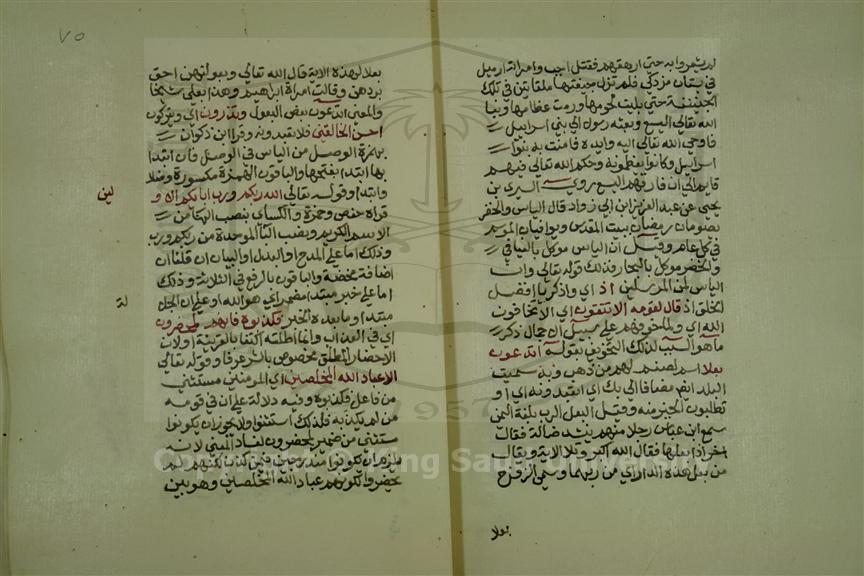 لم يشعروا به حتى ارهقهم فقتل اجب وامراته ازبيل
في بستان مزدكي فلم تزل جيفتهما ملقاتين في تلك
الجنينة حتى بليت لحومهما ورمت عظامهما ونبا
الله تعالى اليسع وبعثه رسولا الى بني اسرايل
فاوحى الله تعالى اليه وايده فامنت به بنوا
اسرايل وكانوا يعظمونه وحكم الله تعالى فيهم
قايم الى ان فارقهم اليسع روى السري بن
يحيى عن عبد العزيز ابن ابي رواد قال الياس والخضر
يصومان رمضان ببيت المقدس ويوافيان الموسم
في كل عام وقيل ان الياس موكل بالفيافي
والخضر موكل بالبحار فذلك قوله تعالى وان
الياس لمن المرسلين اذ اي واذكر يا افضل
الخلق اذ قال لقومه الا تتقون اي الا تخافون
الله اي ولما خوفهم على سبيل الاجمال ذكر
ما هو السبب لذلك التخويف بقوله اتدعون
بعلا اسم لصنم لهم من ذهب وبه سميت
البلد ايضا مضافا الى بك اي اتعبدونه اي او
تطلبون الخير منه وقيل البعل الرب بلغة اليمن
سمع ابن عباس رجلا منهم ينشد ضالة فقال
اخر انا بعلها فقال الله اكبر وتلا الاية ويقال
من بعل هذه الدار اي من ربها وسمى الزوج
بعلا
٧٥
بعلا لهذه الاية قال الله تعالى وبعولتهن احق
بردهن وقالت امراة ابراهيم وهذا بعلي شيخا
والمعنى اتدعون بعض البعول وتذرون اي وتتركون
احسن الخالقين فلا تعبدونه وقرا ابن ذكوان
بهمزة الوصل من الياس في الوصل فان ابتدا
بها ابتدا بفتحها والباقون بهمزة مكسورة وصلا
وابتدا وقوله تعالى الله ربكم ورب ابايكم الاو
لين
قراه حفص وحمزة والكسائ بنصب الها من
الاسم الكريم ونصب البا الموحدة من ربكم ورب
وذلك اما على المدح او البدل او البيان ان قلنا ان
اضافة محضة والباقون بالرفع في الثلاثة وذلك
اما على خبر مبتدا مضمر اي هو الله او على ان الجلا
لة
مبتدا وما بعده الخبر فكذبوه فانهم لمحضرون
اي في العذاب وانما اطلقه اكتفا بالقرينة او لان
الاحضار المطلق مخصوص بالشر عرفا وقوله تعالى
الا عباد الله المخلصين اي المومنين مستثنى
من فاعل فكذبوه وفيه دلالة على ان في قومه
من لم يكذبه فلذلك استثنوا ولا يجوز ان يكونوا
مستثنى من ضمير لمحضرون لفساد المعنى لانه
يلزم ان يكونوا مندرجين فيمن كذب لكنهم لم
يحضروا لكونهم عباد الله المخلصين وهو بين